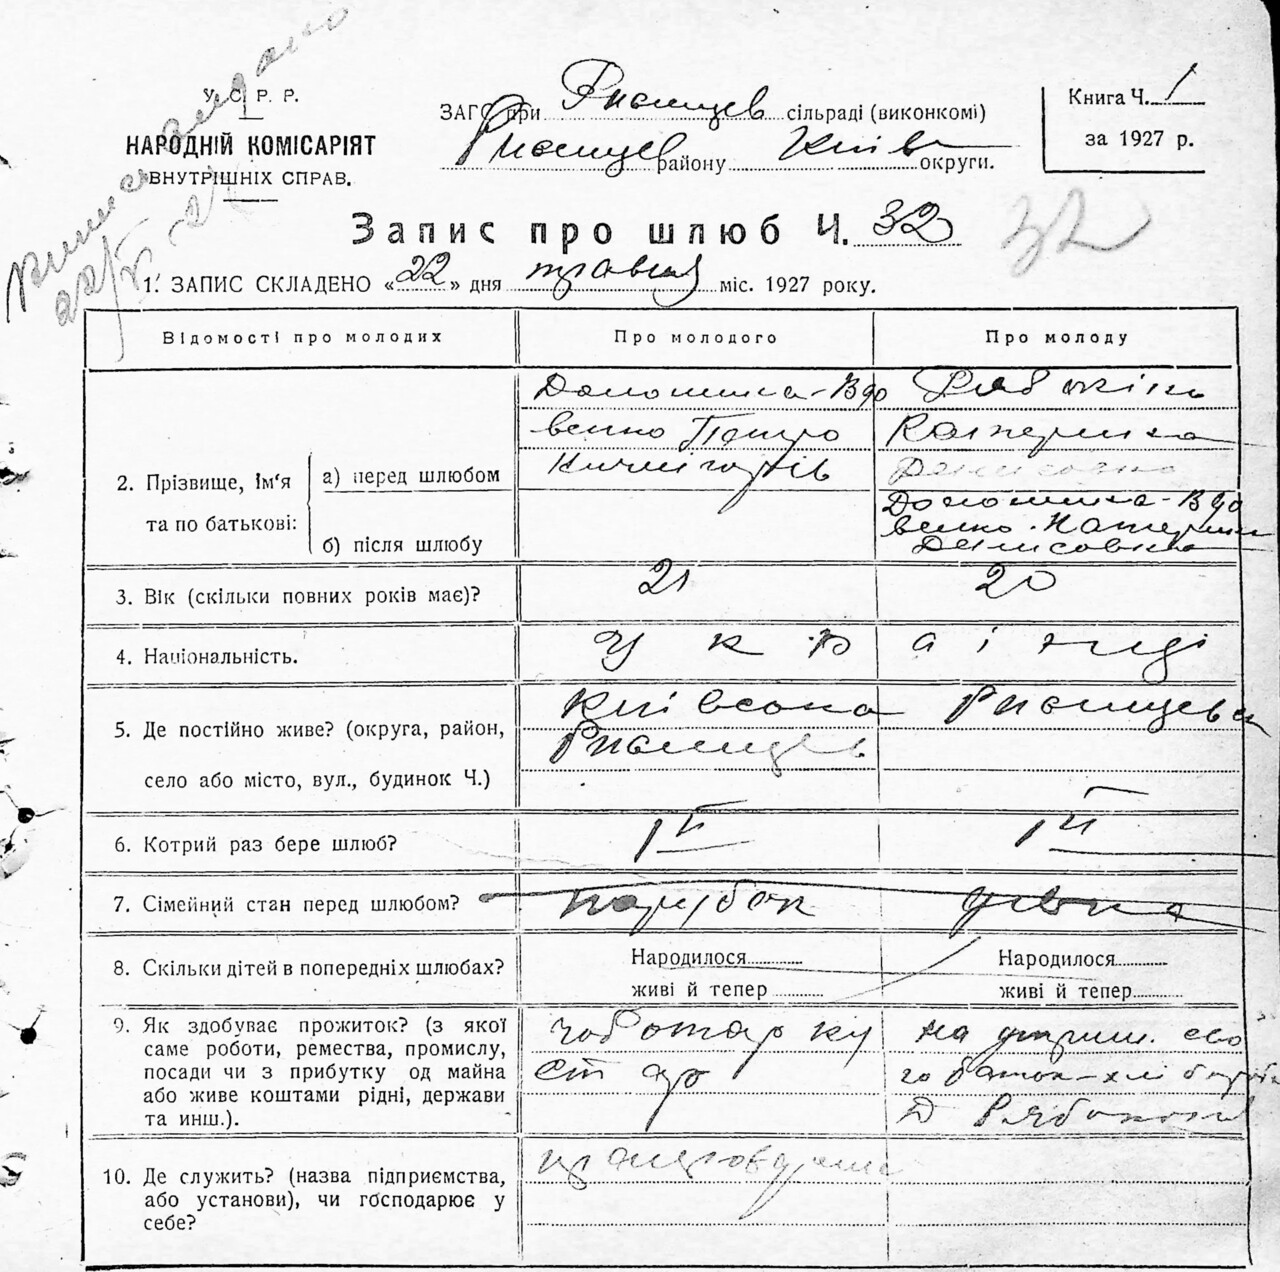 виписа видано
22/V 27
У. С. Р. Р.
НАРОДНІЙ КОМІСАРІЯТ
ВНУТРІШНІХ СПРАВ.
ЗАГС при Ржищев сільраді (виконкомі)
Ржищев району Київ округи.
Книга Ч. 1
за 1927 р.
Запис про шлюб Ч. 32
32
1. ЗАПИС СКЛАДЕНО «22» дня травня міс. 1927 року.
Відомості про молодих Про молодого Про молоду
2. Прізвище, ім'я та по батькові:
а) перед шлюбом
б) після шлюбу
Вдо
венко Петро
Рябокінь
Катерина
Денисовна
Вдо
венко Катерина
Денисовна
3. Вік (скільки повних років має)? 21 20
4. Національність. українці
5. Де постійно живе? (округа, район,
село або місто, вул., будинок Ч.)
Київська Ржищевск
Ржищев
6. Котрий раз бере шлюб? 1й 1й
7. Сімейний стан перед шлюбом? парубок дівка
8. Скільки дітей в попередніх шлюбах? Народилося Народилося
живі й тепер живі й тепер
9. Як здобуває прожиток? (з якої
саме роботи, ремества, промислу,
посади чи з прибутку од майна
або живе коштами рідні, держави
та инш.).
чоботар ку
на утрим. сво
го батьк-хлібороба
Д Рябоконь
10. Де служить? (назва підприємства,
або установи), чи господарює у
себе?